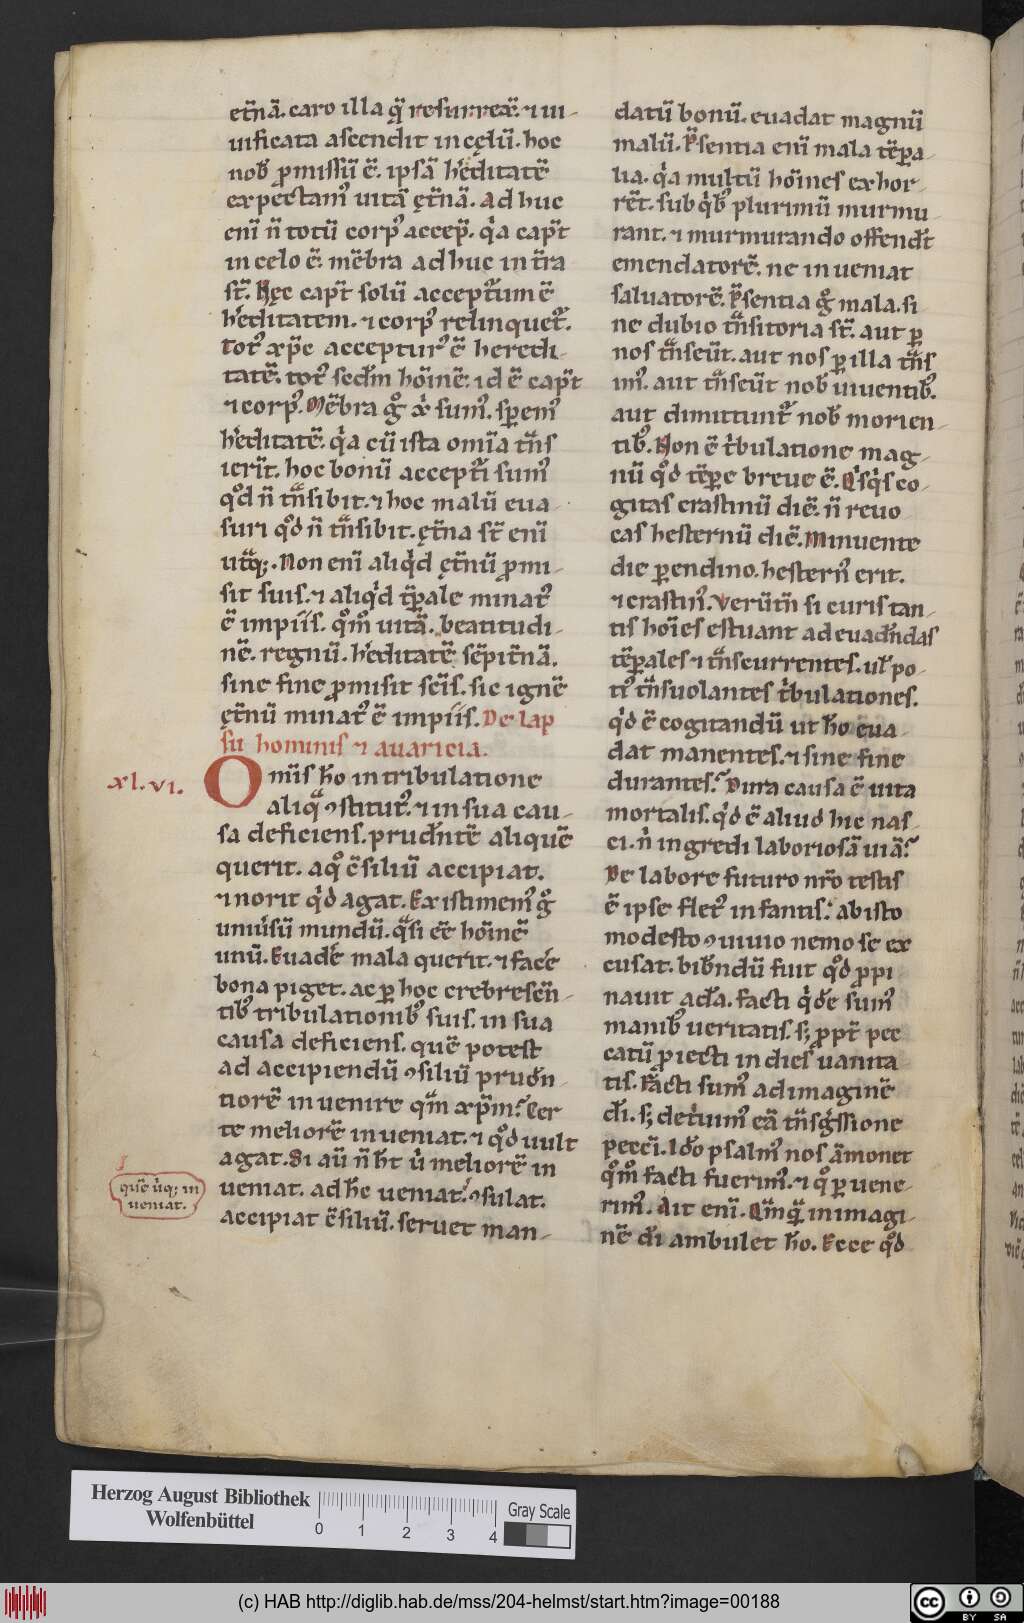 et̄nā. caro illa q̄ resurrex̄. ⁊ ui-
uificata ascendit in cęlū. hoc
nob̄ p̄missū ē. ipsā h̓editatē
expectam᷒ uitā ęt̄nā. Ad huc
enī n̄ totū corp᷒ accep̄. q̓a cap̄t
in celo ē. mēbra adhuc in t̄ra
st̄. Hęc cap̄t solū accept̄um ē
h̓editatem. ⁊ corp᷒ relinquet᷒.
Tot᷒ xp̄c acceptur᷒ ē heredi-
tatē. tot᷒ sec̄dm hōinē. id ē cap̄t
⁊ corp᷒. Mēbra g̊ x̄ sum᷒. sperem᷒
h̓editatē. q̓a cū ista omīa t̄ns
ierīt. hoc bonū accept̄i sum᷒
qd̊ n̄ t̄nsibit. ⁊ hoc malū eua
suri qd̊ n̄ t̄nsibit. ęt̄na st̄ enī
utq̄;. Non enī aliq̓d ęt̄nū p̄mi-
sit suis. ⁊ aliq̓d tp̄ale minat᷒
ē impiis. qm̊ uitā. beatitudi-
nē. regnū. h̓editatē sēpit̄nā.
sine fine p̄misit sc̄is. sic ignē
ęt̄nū minat᷒ ē impiis. De lap
su hominis ⁊ auaricia.
xl.vi.
Omīs h̄o in tribulatione
aliq̄ ꝯstitut᷒. ⁊ in sua cau-
sa deficiens. prud̄ntē aliquē
querit. a q̊ c̄siliū accipiat.
⁊ norit q̓d agat. Existimem᷒ g̊
uniu̓sū mundū. q̄si eē hōinē
unū. Euad̓e mala querit. ⁊ fac̓e
bona piget. ac ꝑ hoc crebresc̄n-
tib᷒ tribulationib᷒ suis. in sua
causa deficiens. quē potest
ad accipiendū ꝯsiliū prud̄n-
tiorē inuenire qm̄ xp̄m. Cer
te meliorē inueniat. ⁊ qd̊ uult
agat. Si aū n̄ h̄t u̓ meliorē in
ueniat. ad h̄c ueniat. ꝯsulat.
accipiat c̄siliū. seruet man-
quē u̓q; in
ueniat.
datū bonū. euadat magnū
malū. p̄sentia enī mala tēpa-
lia. q̓a multū hōines exhor-
rēt. sub q̓b᷒ plurimū murmu
rant. ⁊ murmurando offend̄t
emendatorē. ne inueniat
saluatorē. p̄sentia g̊ mala. si
ne dubio t̄nsitoria st̄. aut ꝑ
nos t̄nseūt. aut nos ꝑ illa t̄ns
im᷒. aut t̄nseūt nob̄ uiuentib᷒.
aut dimittunt᷒ nob̄ morien-
tib᷒. Non ē t̓bulatione mag-
nū qd̊ tēpe breue ē. Q̓sq̓s co-
gitas crastinū diē. n̄ reuo
cas hesternū diē. Minuente
die perendino. hestern᷒ erit.
⁊ crastin᷒. Verūt̄n si curis tan-
tis hoīes estuant ad euad̄ndas
tēpales ⁊ t̄nscurrentes. ul̄ po-
ti᷒ t̄nsuolantes t̓bulationes.
q̓d ē cogitandū ut h̄o eua-
dat manentes. ⁊ sine fine
durantes. Dura causa ē uita
mortalis. q̓d ē aliud hic nas-
ci. n̓ ingredi laboriosā uiā.
De labore futuro nr̄o testis
ē ipse flet᷒ infantis. ab isto
modesto ꝯuiuio nemo se ex
cusat. bib̄ndū fuit qd̊ p̄pi
nauit ad̄a. facti q̓d̄e sum᷒
manib᷒ ueritatis. s; p̄pt̄ pec
catū p̄iecti in dies uanita
tis. Facti sum᷒ ad imaginē
d̄i. s; det̓uim᷒ eā t̄nsg̓ssione
peccī. Id̄o psalm᷒ nos āmonet
qm̊ facti fuerim᷒. ⁊ q̊ ꝑuene-
rim᷒. Ait enī. Qm̄q̄ in imagi-
nē d̄i ambulet h̄o. Ecce qd̊
Herzog August Bibliothek
Wolfenbüttel
0 1 2 3 4
Gray Scale
(c) HAB http://diglib.hab.de/mss/204-helmst/start.htm?image=00188
cc BY SA